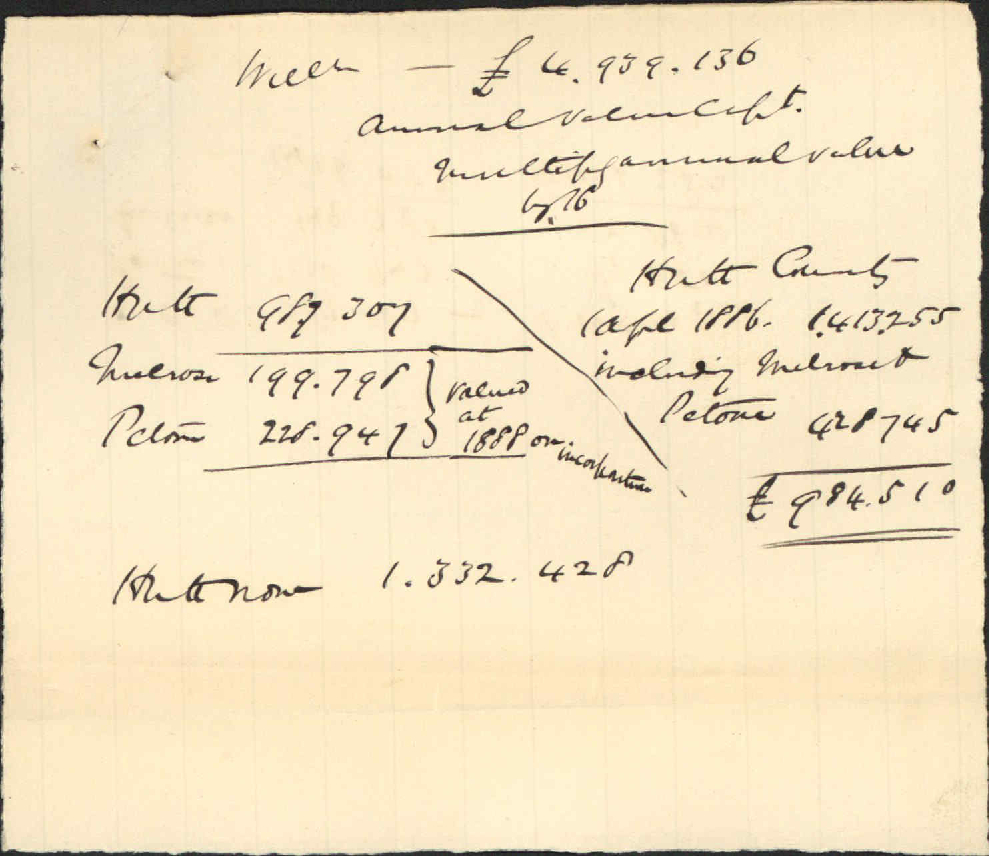 Welln — £ 4.939.136
Annual value Capt.
multiply annual value
by 16
Hutt 987.307
Melrose 199.798
Petone 228.947
valued
at
1888 on
incorporation
Hutt County
1 Apl 1886. 1,413,255
including Melrose &
Petone 428 745
£ 984.510
Hutt now 1.332.428